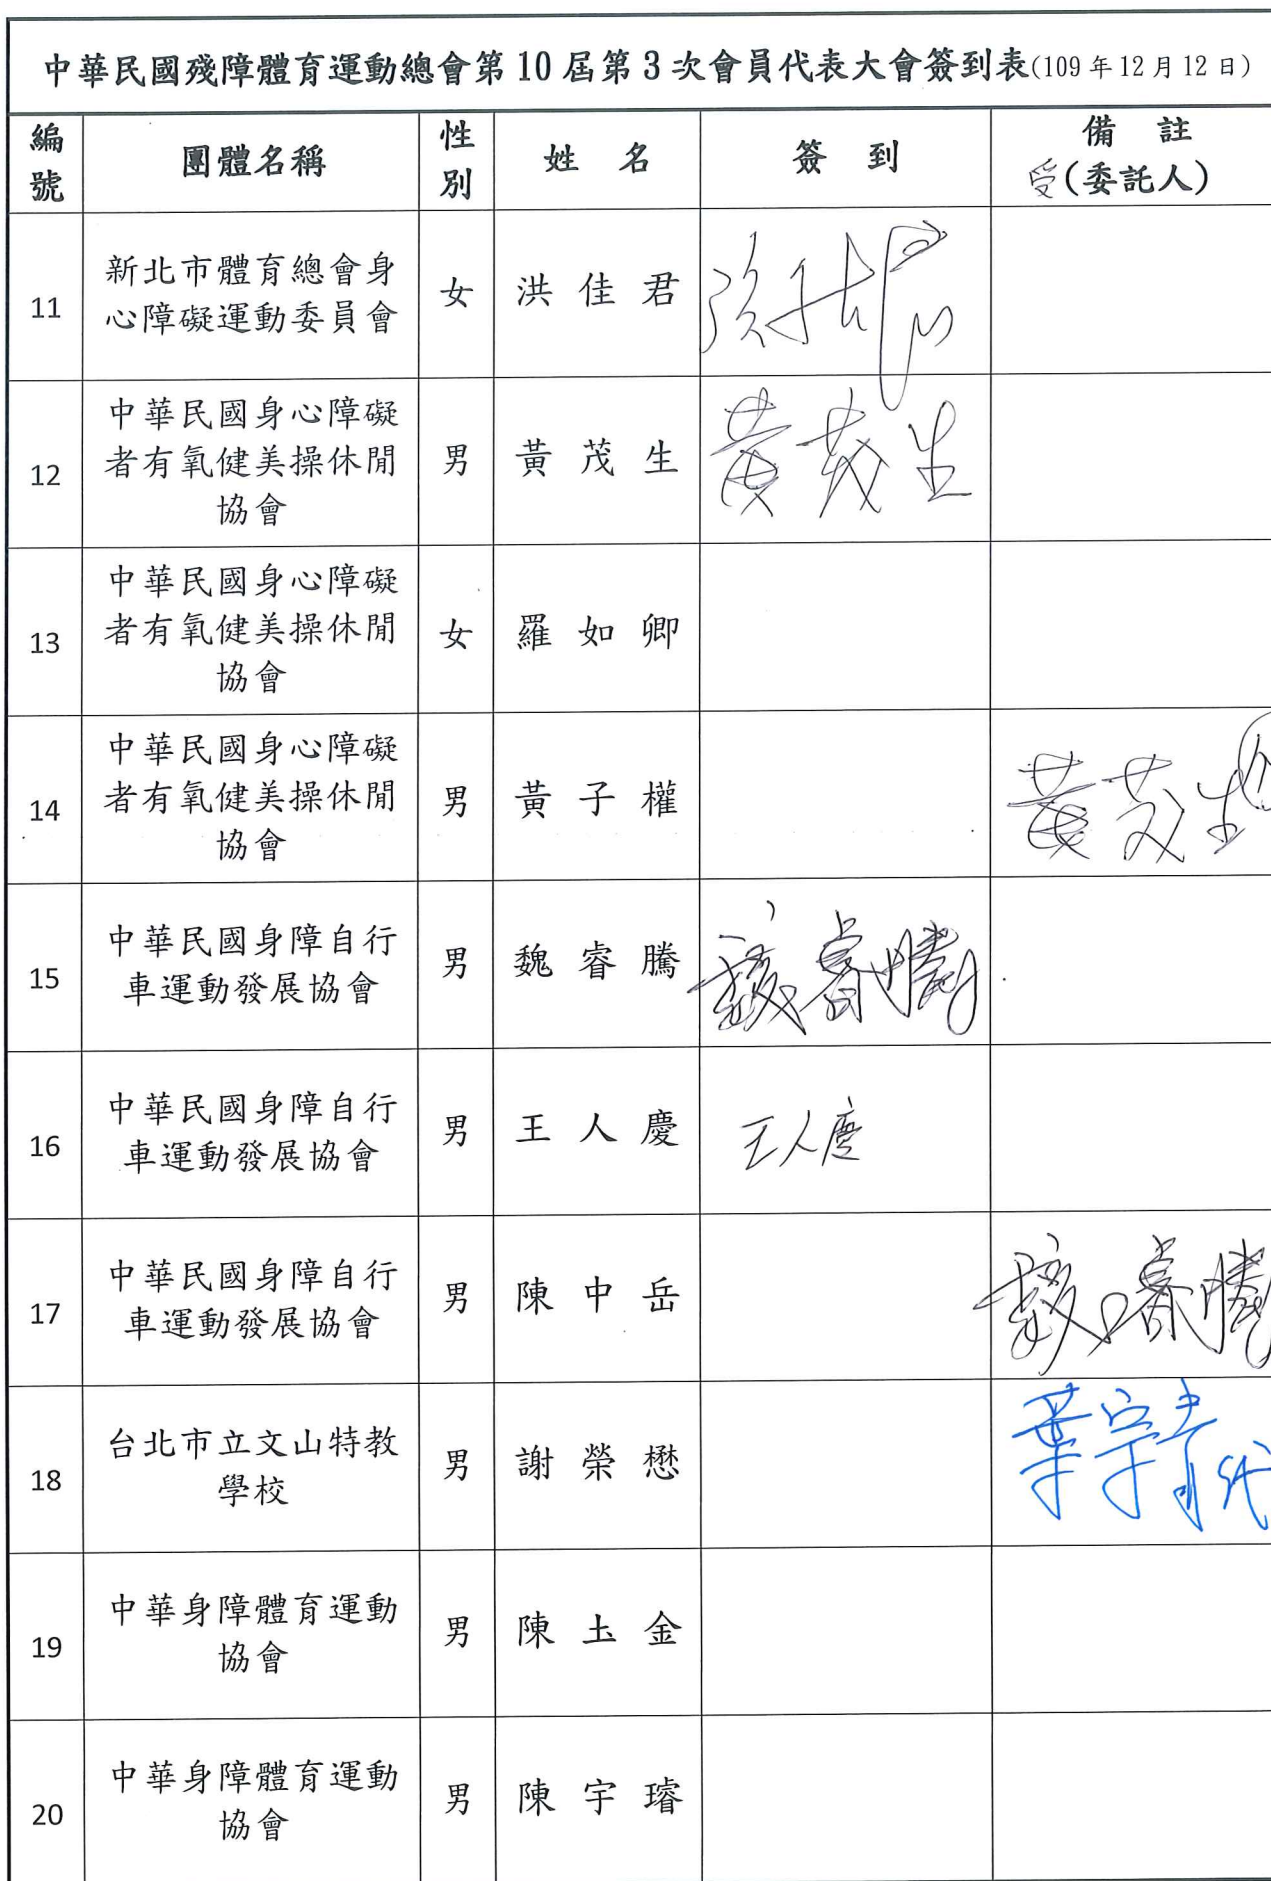 中華民國殘障體育運動總會第10屆第3次會員代表大會簽到表(109年12月12日)
編號 團體名稱 性別 姓名 簽到 備註
受(委託人)
11 新北市體育總會身
心障礙運動委員會 女 洪佳君
12 中華民國身心障礙
者有氧健美操休閒
協會 男 黃茂生 黃茂生
13 中華民國身心障礙
者有氧健美操休閒
協會 女 羅如卿
14 中華民國身心障礙
者有氧健美操休閒
協會 男 黃子權 黃茂生
15 中華民國身障自行
車運動發展協會 男 魏睿騰 魏睿騰
16 中華民國身障自行
車運動發展協會 男 王人慶 王人慶
17 中華民國身障自行
車運動發展協會 男 陳中岳 魏睿騰
18 台北市立文山特教
學校 男 謝榮懋 葉宗青代
19 中華身障體育運動
協會 男 陳圡金
20 中華身障體育運動
協會 男 陳宇璿